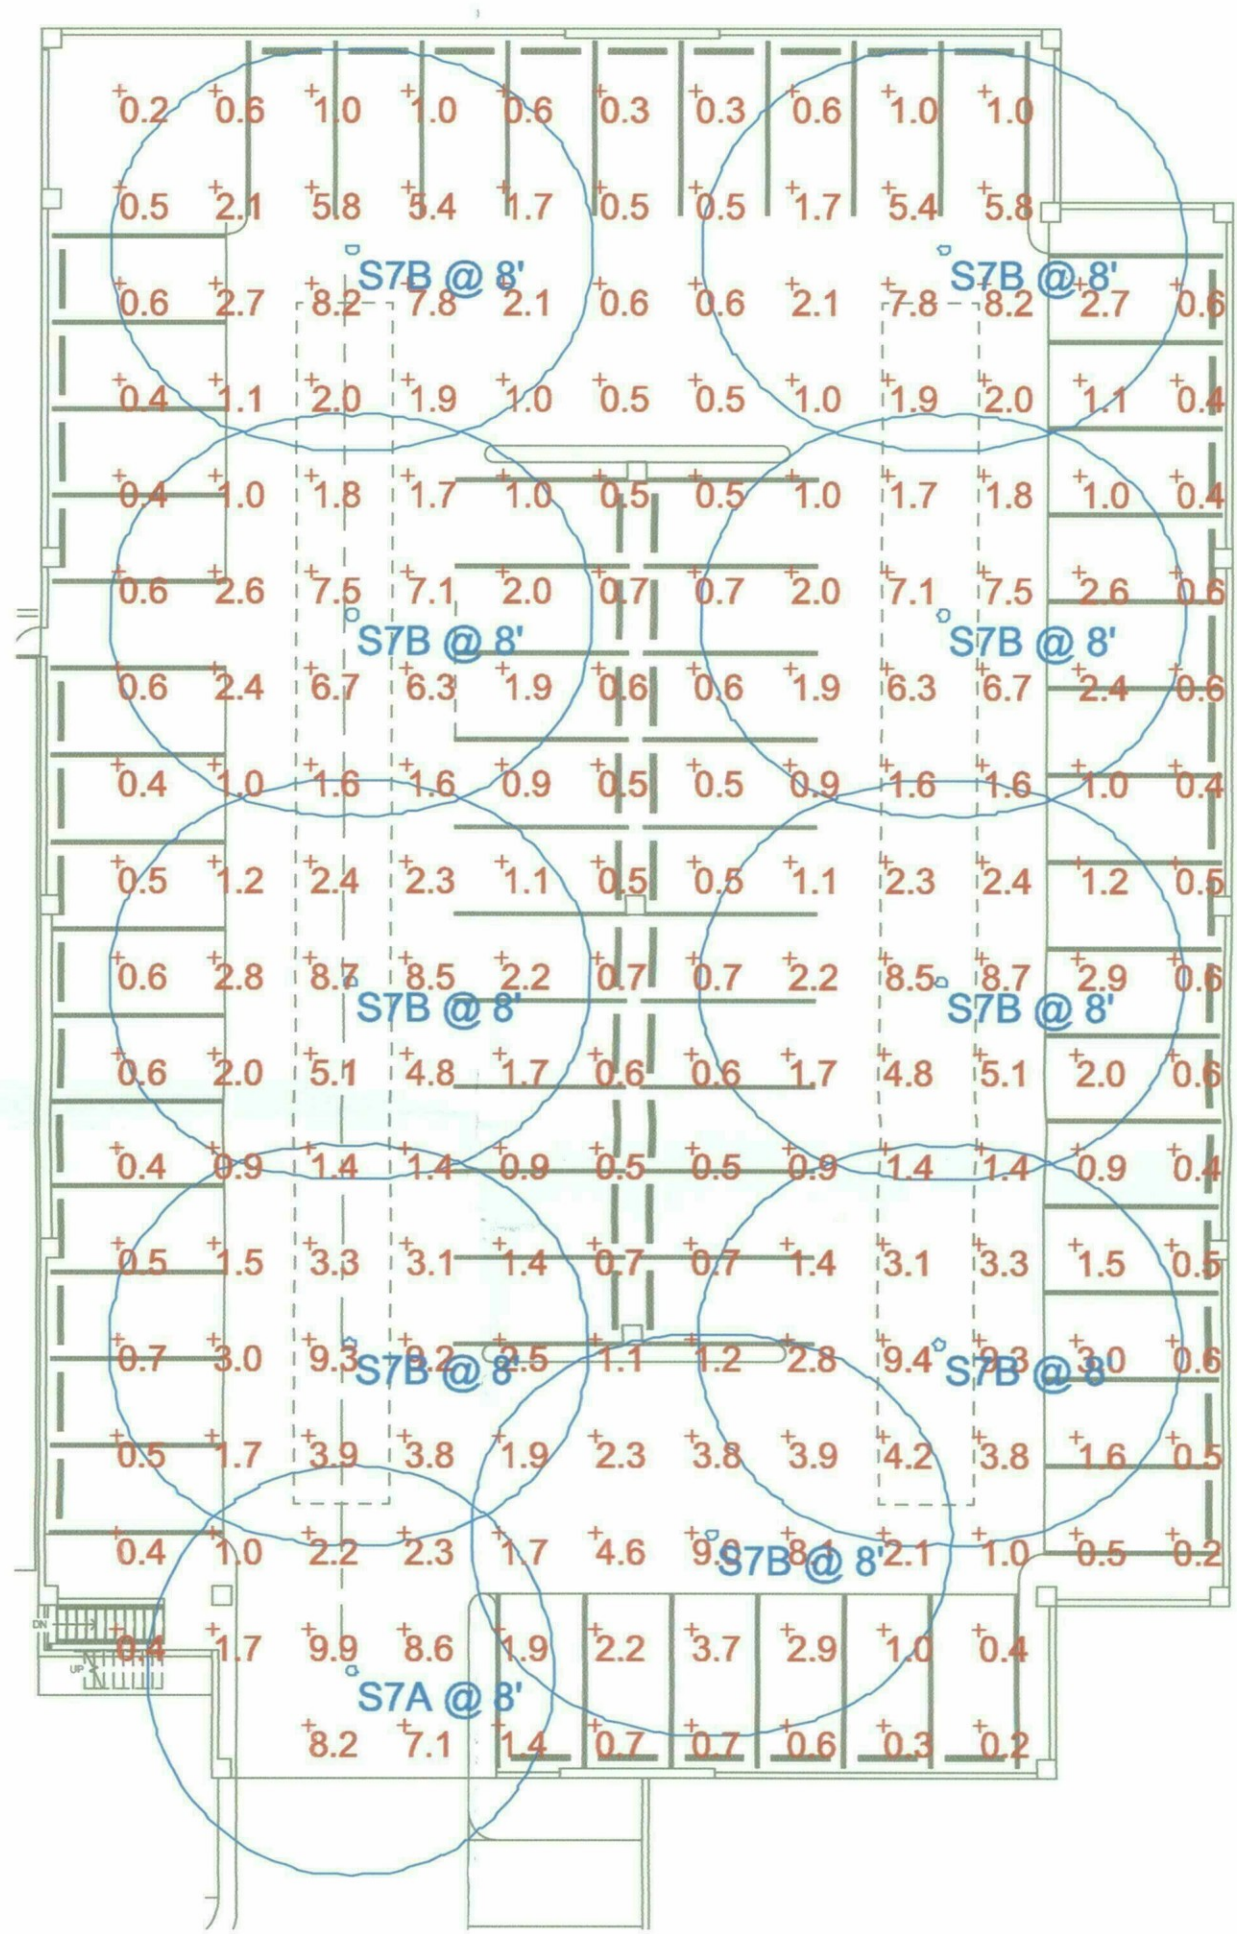 0.2 0.6 1.0 1.0 0.6 0.3 0.3 0.6 1.0 1.0
0.5 2.1 5.8 5.4 1.7 0.5 0.5 1.7 5.4 5.8
S7B @ 8' S7B @ 8'
0.6 2.7 8.2 7.8 2.1 0.6 0.6 2.1 7.8 8.2 2.7 0.6
0.4 1.1 2.0 1.9 1.0 0.5 0.5 1.0 1.9 2.0 1.1 0.4
0.4 1.0 1.8 1.7 1.0 0.5 0.5 1.0 1.7 1.8 1.0 0.4
0.6 2.6 7.5 7.1 2.0 0.7 0.7 2.0 7.1 7.5 2.6 0.6
S7B @ 8' S7B @ 8'
0.6 2.4 6.7 6.3 1.9 0.6 0.6 1.9 6.3 6.7 2.4 0.6
0.4 1.0 1.6 1.6 0.9 0.5 0.5 0.9 1.6 1.6 1.0 0.4
0.5 1.2 2.4 2.3 1.1 0.5 0.5 1.1 2.3 2.4 1.2 0.5
0.6 2.8 8.7 8.5 2.2 0.7 0.7 2.2 8.5 8.7 2.9 0.6
S7B @ 8' S7B @ 8'
0.6 2.0 5.1 4.8 1.7 0.6 0.6 1.7 4.8 5.1 2.0 0.6
0.4 0.9 1.4 1.4 0.9 0.5 0.5 0.9 1.4 1.4 0.9 0.4
0.5 1.5 3.3 3.1 1.4 0.7 0.7 1.4 3.1 3.3 1.5 0.5
0.7 3.0 9.3 9.2 2.5 1.1 1.2 2.8 9.4 9.3 3.0 0.6
S7B @ 8' S7B @ 8'
0.5 1.7 3.9 3.8 1.9 2.3 3.8 3.9 4.2 3.8 1.6 0.5
0.4 1.0 2.2 2.3 1.7 4.6 2.1 1.0 0.5 0.2
S7B @ 8'
DN
0.4 1.7 9.9 8.6 1.9 2.2 3.7 2.9 1.0 0.4
UP
S7A @ 8'
8.2 7.1 1.4 0.7 0.7 0.6 0.3 0.2